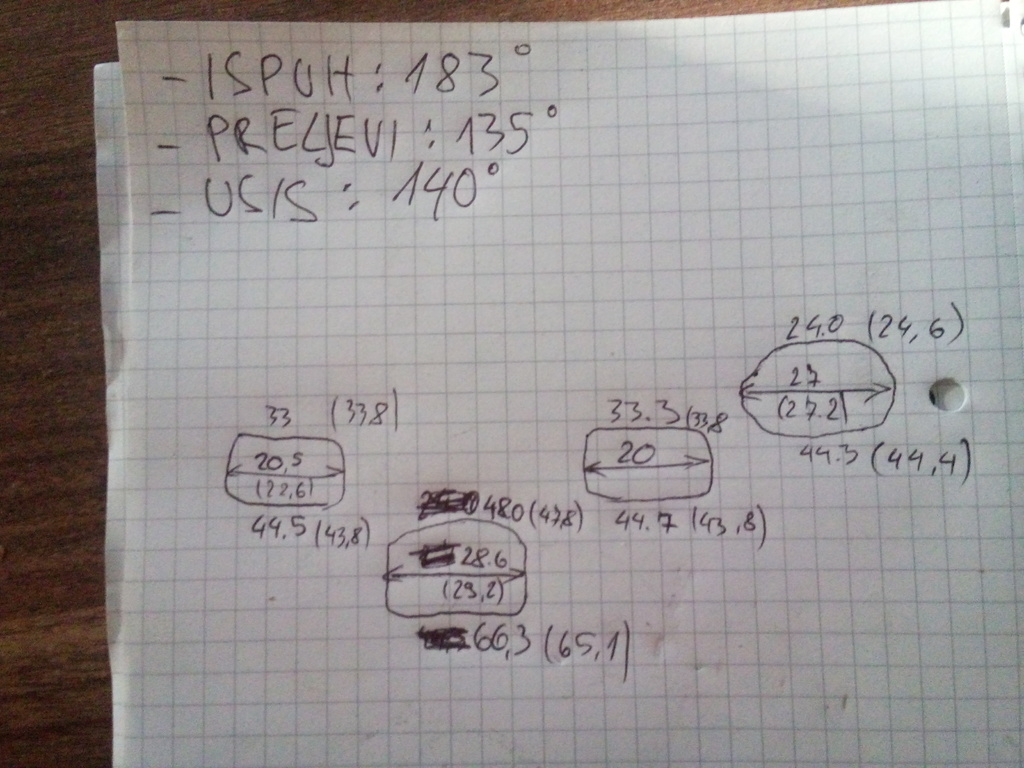 - ISPUH : 183°
- PRELJEVI : 135°
- USIS : 140°
24.0 (24,6)
27
(27.2)
44.3 (44,4)
33 (33,8)
20,5
(22,6)
44.5 (43,8)
33.3 (33,8
20
44.7 (43,8)
48.0 (47,8)
28.6
(29,2)
66,3 (65,1)